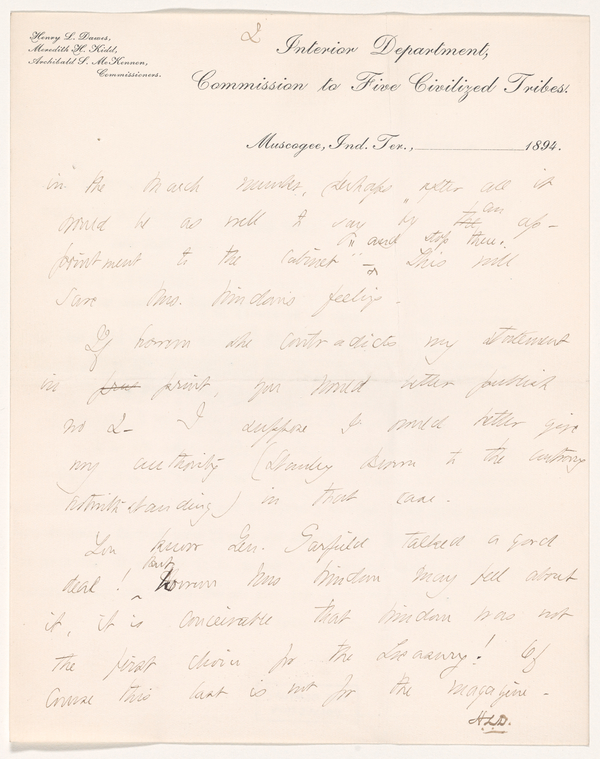 Henry L. Dawes,
Meredith H. Kidd,
Archibald S. McKennon,
Commissioners.
2
Interior Department,
Commission to Five Civilized Tribes.
Muscogee, Ind. Ter., 1894.
in the March number, perhaps after all it
would be as well to say " by the an ap-
pointment to the Cabinet " and stop there. This will
save Mrs. Windom's feelings.
If however she contradicts my statement
in print, you would better publish
no 2 - I suppose I would better give
my authority (Stanley Brown to the contrary
notwithstanding) in that case.
You know Gen. Garfield talked a good
deal! but however Mrs Windom may feel about
it, it is conceivable that Windom was not
the first choice for the Treasury! Of
course this last is not for the magazine -
H.L.D.